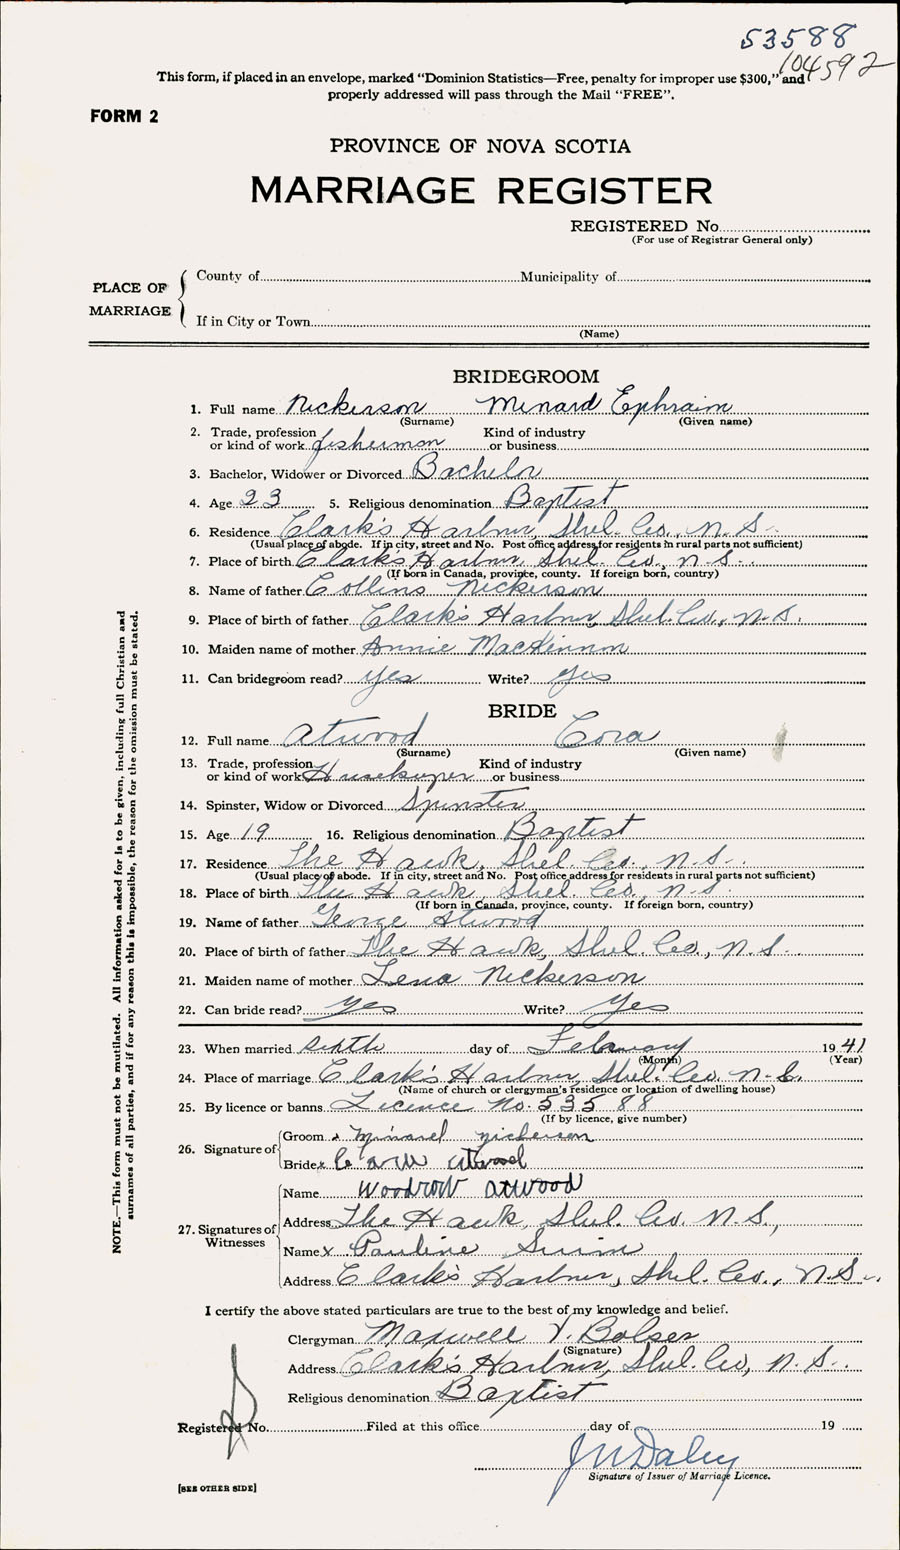 53588
104592
This form, if placed in an envelope, marked "Dominion Statistics—Free, penalty for improper use $300," and
properly addressed will pass through the Mail "FREE".
FORM 2
PROVINCE OF NOVA SCOTIA
MARRIAGE REGISTER
REGISTERED No.
(For use of Registrar General only)
PLACE OF MARRIAGE
County of Municipality of
If in City or Town
(Name)
BRIDEGROOM
1. Full name Nickerson Minard Ephraim
(Surname) (Given name)
2. Trade, profession Kind of industry
or kind of work fisherman or business
3. Bachelor, Widower or Divorced Bachelor
4. Age 23 5. Religious denomination Baptist
6. Residence Clark's Harbour, Shel. Co., N.S.
(Usual place of abode. If in city, street and No. Post office address for residents in rural parts not sufficient)
7. Place of birth Clark's Harbour Shel. Co., N.S.
(If born in Canada, province, county. If foreign born, country)
8. Name of father Collins Nickerson
9. Place of birth of father Clark's Harbour, Shel. Co., N.S.
10. Maiden name of mother Annie MacKinnon
11. Can bridegroom read? yes Write? yes
BRIDE
12. Full name Atwood Cora
(Surname) (Given name)
13. Trade, profession Kind of industry
or kind of work Housekeeper or business
14. Spinster, Widow or Divorced Spinster
15. Age 19 16. Religious denomination Baptist
17. Residence The Hawk, Shel. Co., N.S.
(Usual place of abode. If in city, street and No. Post office address for residents in rural parts not sufficient)
18. Place of birth The Hawk, Shel. Co., N.S.
(If born in Canada, province, county. If foreign born, country)
19. Name of father George Atwood
20. Place of birth of father The Hawk, Shel. Co., N.S.
21. Maiden name of mother Lena Nickerson
22. Can bride read? yes Write? Yes
23. When married sixth day of February 1941
(Month) (Year)
24. Place of marriage Clark's Harbour, Shel. Co. N.S.
(Name of church or clergyman's residence or location of dwelling house)
25. By licence or banns Licence No. 53588
(If by licence, give number)
26. Signature of
Groom x Minard Nickerson
Bride x Cora Atwood
27. Signatures of Witnesses
Name Woodrow Atwood
Address The Hawk, Shel. Co. N.S.,
Name x Pauline Swim
Address Clark's Harbour, Shel. Co., N.S.
I certify the above stated particulars are true to the best of my knowledge and belief.
Clergyman Maxwell V. Bolser
(Signature)
Address Clark's Harbour, Shel. Co, N.S.
Religious denomination Baptist
Registered No. Filed at this office day of 19
JM Daley
Signature of Issuer of Marriage Licence.
[SEE OTHER SIDE]
NOTE.—This form must not be mutilated. All information asked for is to be given, including full Christian and
surnames of all parties, and if for any reason this is impossible, the reason for the omission must be stated.